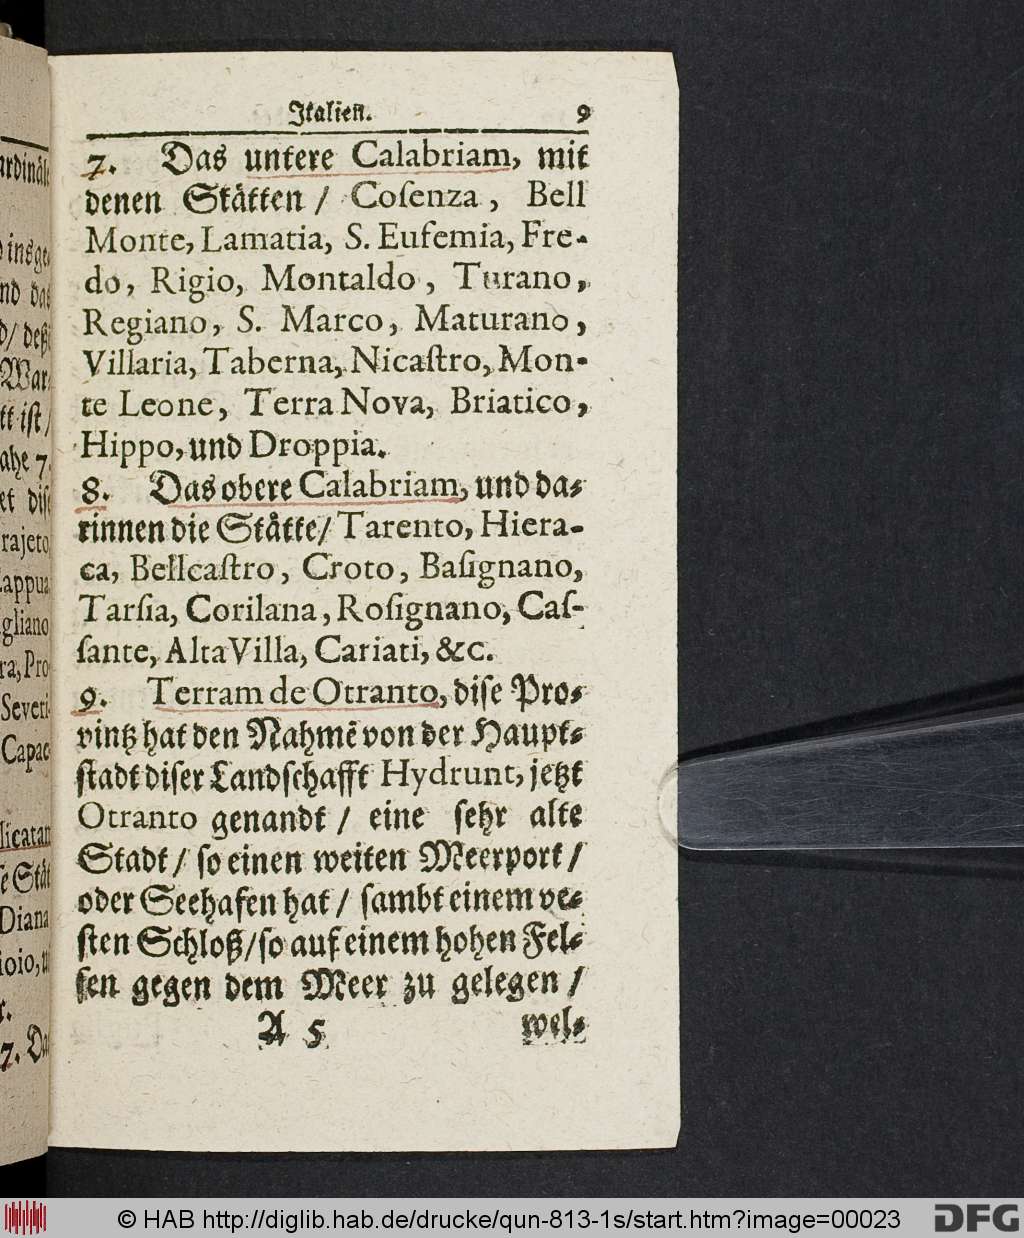 Italien. 9
7. Das untere Calabriam, mit
denen Stätten / Coſenza, Bell
Monte, Lamatia, S. Eufemia, Fre-
do, Rigio, Montaldo, Turano,
Regiano, S. Marco, Maturano,
Villaria, Taberna, Nicaſtro, Mon-
te Leone, Terra Nova, Briatico,
Hippo, und Droppia.
8. Das obere Calabriam, und da-
rinnen die Stätte / Tarento, Hiera-
ca, Bellcaſtro, Croto, Baſignano,
Tarſia, Corilana, Roſignano, Caſ-
ſante, Alta Villa, Cariati, &c.
9. Terram de Otranto, diſe Pro-
vintz hat den Nahmẽ von der Haupt-
ſtadt diſer Landſchafft Hydrunt, jetzt
Otranto genandt / eine ſehr alte
Stadt / ſo einen weiten Meerport /
oder Seehafen hat / ſambt einem ve-
ſten Schloß / ſo auf einem hohen Fel-
ſen gegen dem Meer zu gelegen /
A 5 wel-
ardinäle
inſge-
nd das
Wart
iſt /
ahe 7.
rajeto
appua
gliano
ra, Pro
Severi-
Capac
licatam
Diana
ioio,
7. Das
© HAB http://diglib.hab.de/drucke/qun-813-1s/start.htm?image=00023
DFG